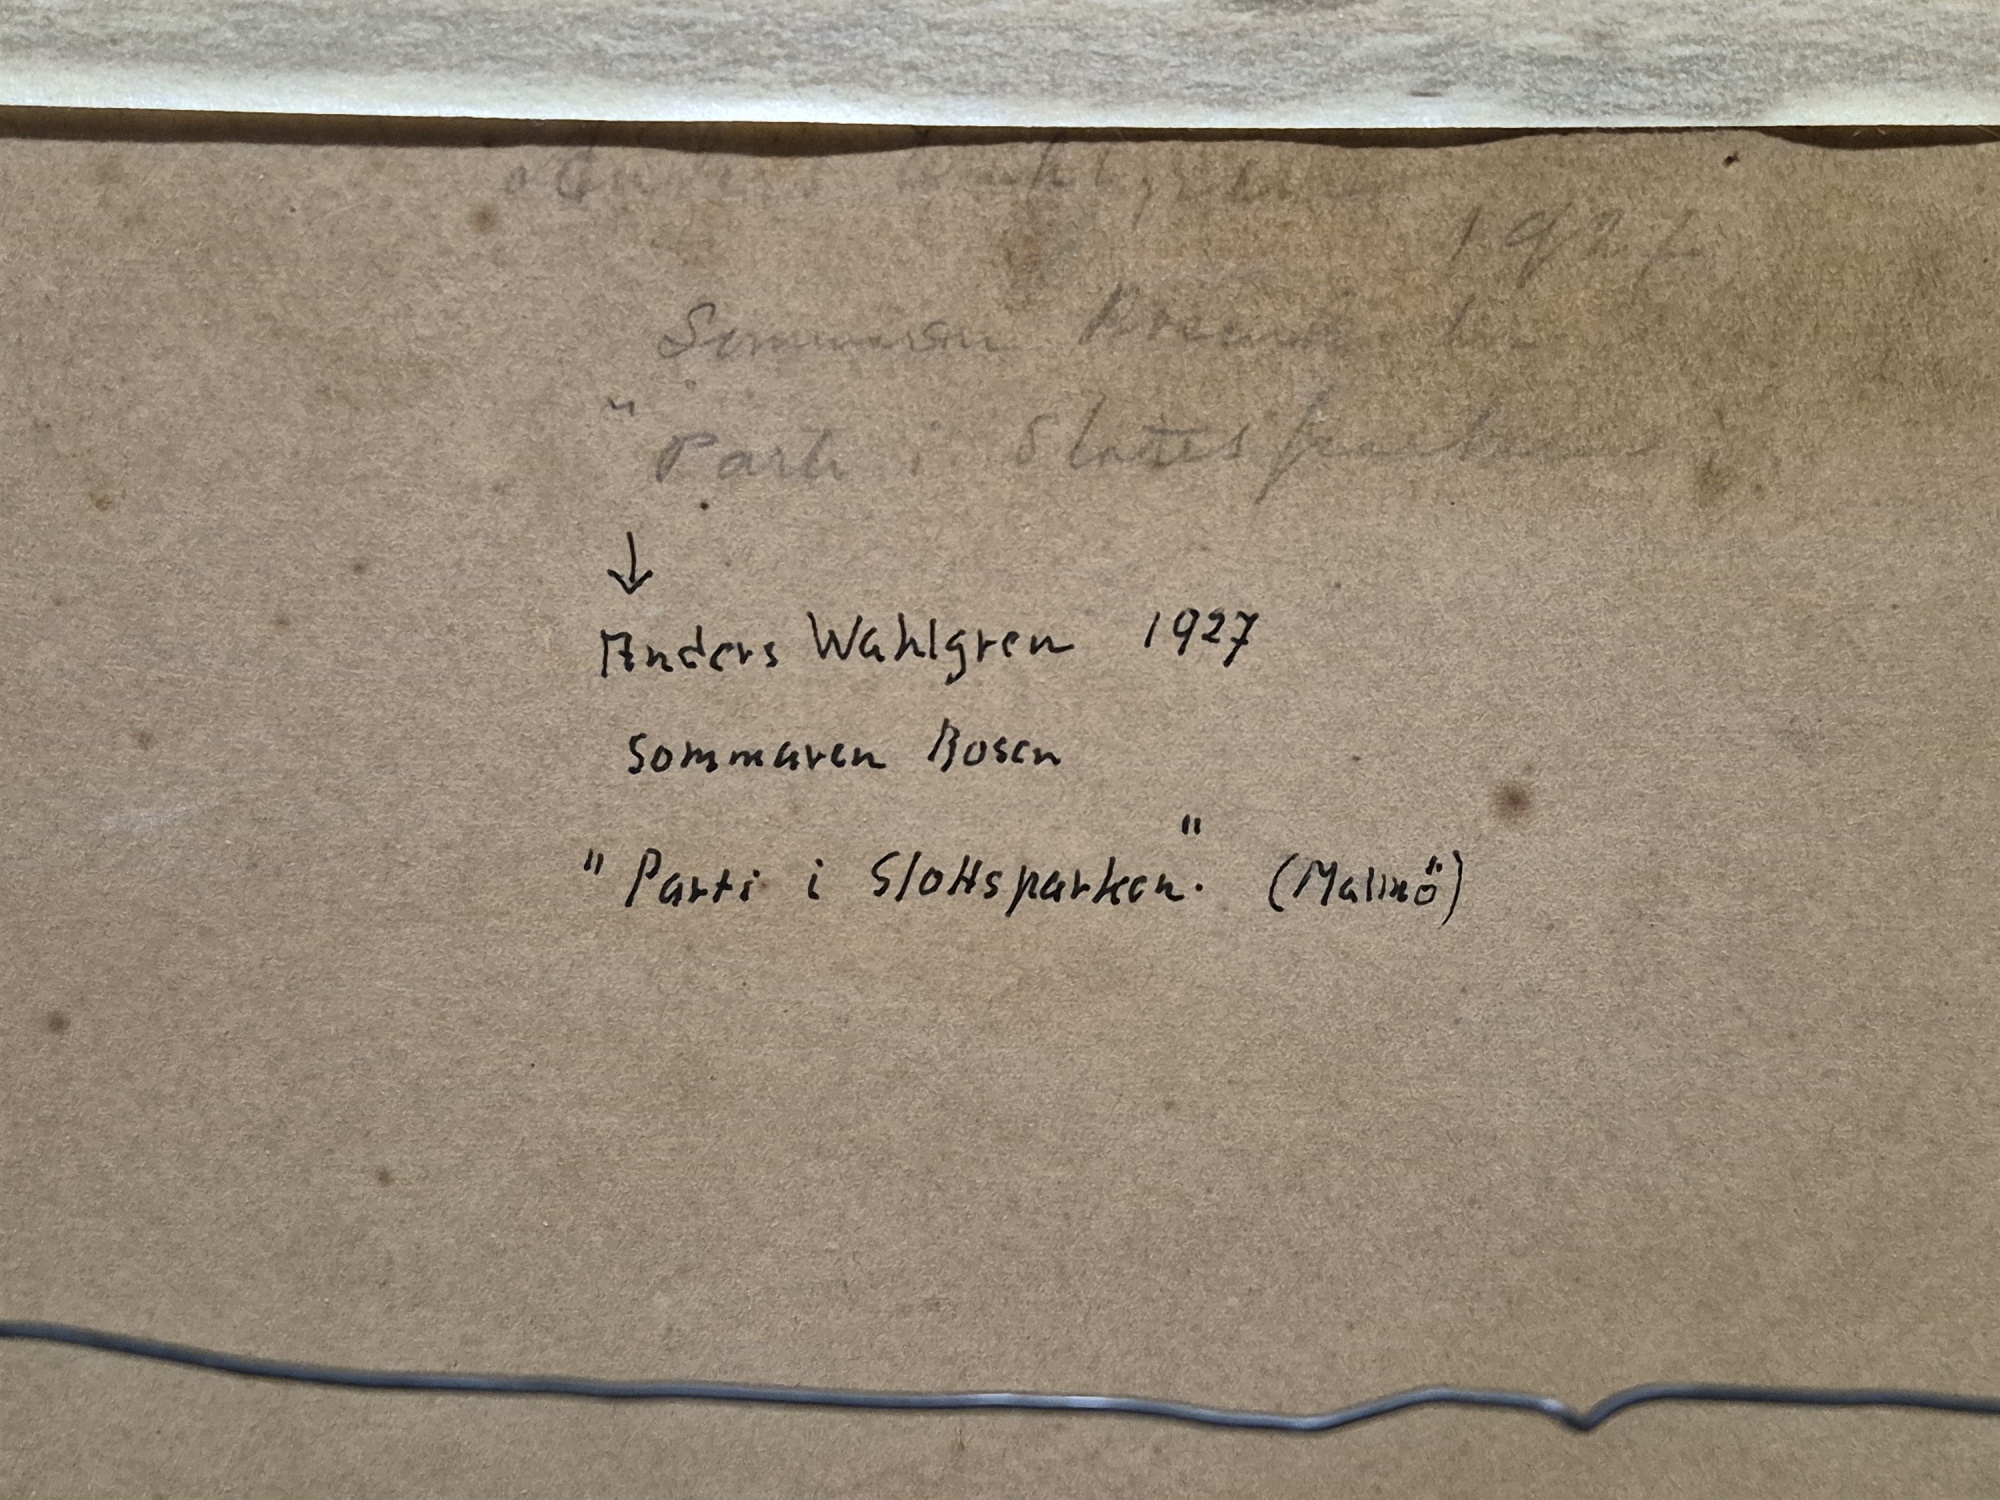 1927
Sommaren
" Parti i Slottsparken
↓
Anders Wahlgren 1927
Sommaren Bosen
" Parti i Slottsparken." (Malmö)